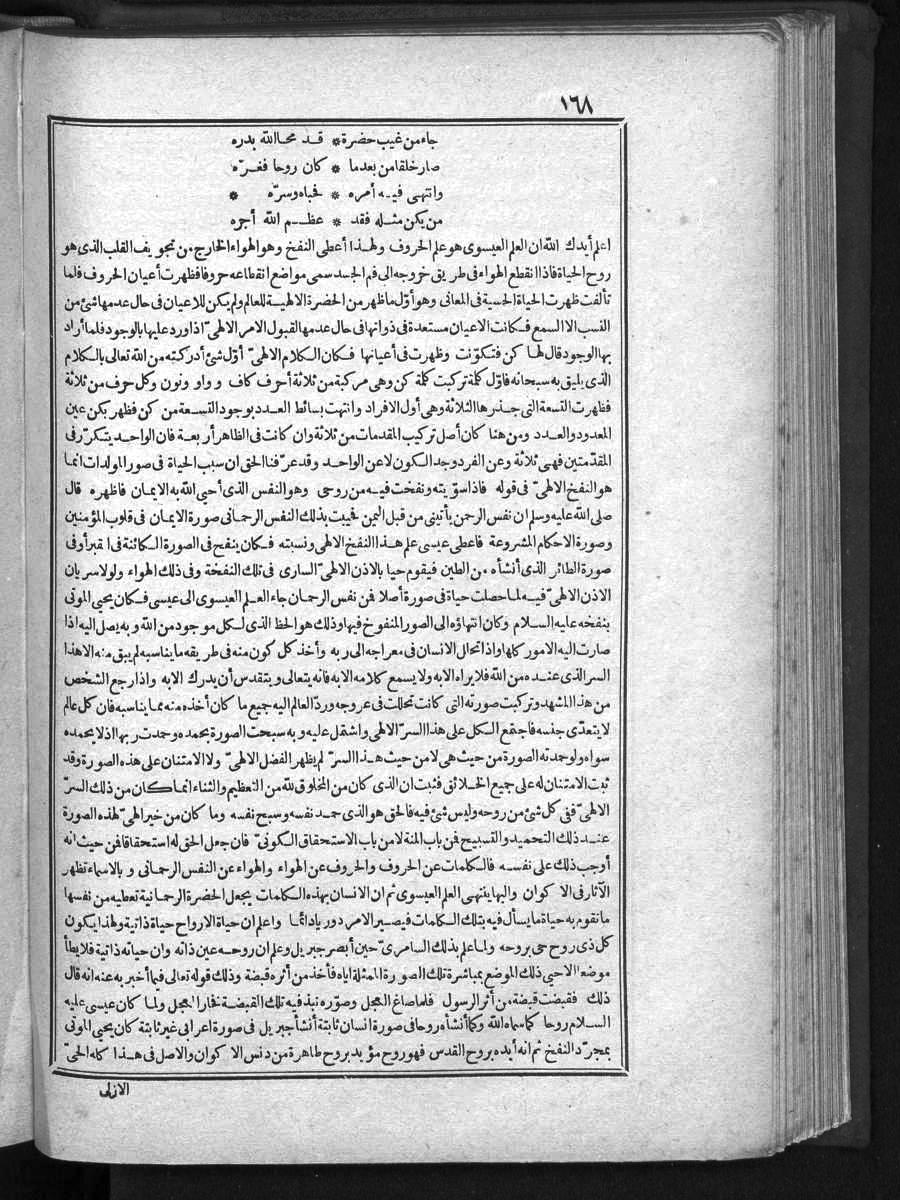 ١٦٨
جاء من غيب حضرة * قد محا الله بدره
صار خلقا من بعدما * كان روحا فغرّه
وانتهى فيه أمره * فحباه وسرّه *
من يكن مثله فقد * عظم الله أجره
اعلم أيدك الله ان العلم العيسوى هو علم الحروف ولهذا أعطى النفخ وهو الهواء الخارج من تجويف القلب الذى هو
روح الحياة فاذا انقطع الهواء فى طريق خروجه الى فم الجسد سمى مواضع انقطاعه حروفا فظهرت أعيان الحروف فلما
تألفت ظهرت الحياة الحسية فى المعانى وهو أوّل ما ظهر من الحضرة الالهية للعالم ولم يكن للاعيان فى حال عدمها شئ من
النسب الا السمع فكانت الاعيان مستعدة فى ذواتها فى حال عدمها لقبول الامر الالهىّ اذا ورد عليها بالوجود فلما أراد
بها الوجود قال لها كن فتكوّنت وظهرت فى أعيانها فكان الكلام الالهىّ أوّل شئ أدركته من الله تعالى بالكلام
الذى يليق به سبحانه فاوّل كلمة تركبت كلمة كن وهى مركبة من ثلاثة أحرف كاف و واو ونون وكل حرف من ثلاثة
فظهرت التسعة التى جذرها الثلاثة وهى أول الافراد وانتهت بسائط العدد بوجود التسعة من كن فظهر بكن عين
المعدود والعدد ومن هنا كان أصل تركيب المقدمات من ثلاثة وان كانت فى الظاهر أربعة فان الواحد يتكرّر فى
المقدّمتين فهى ثلاثة وعن الفرد وجد الكون لا عن الواحد وقد عرّفنا الحق ان سبب الحياة فى صور المولدات انما
هو النفخ الالهىّ فى قوله فاذا سوّيته ونفخت فيه من روحى وهو النفس الذى أحيى الله به الايمان فاظهره قال
صلى الله عليه وسلم ان نفس الرحمن يأتينى من قبل اليمن فحييت بذلك النفس الرحمانى صورة الايمان فى قلوب المؤمنين
وصورة الاحكام المشروعة فاعطى عيسى علم هذا النفخ الالهى ونسبته فكان ينفخ فى الصورة الكائنة فى القبر أو فى
صورة الطائر الذى أنشأه من الطين فيقوم حيا بالاذن الالهىّ السارى فى تلك النفخة وفى ذلك الهواء ولولا سريان
الاذن الالهىّ فيه لما حصلت حياة فى صورة أصلا فمن نفس الرحمان جاء العلم العيسوى الى عيسى فكان يحيى الموتى
بنفخه عليه السلام وكان انتهاؤه الى الصور المنفوخ فيها وذلك هو الحظ الذى لكل موجود من الله وبه يصل اليه اذا
صارت اليه الامور كلها واذا تحلل الانسان فى معراجه الى ربه وأخذ كل كون منه فى طريقه ما يناسبه لم يبق منه الا هذا
السر الذى عنده من الله فلا يراه الا به ولا يسمع كلامه الا به فانه يتعالى ويتقدس أن يدرك الا به واذا رجع الشخص
من هذا المشهد وتركبت صورته التى كانت تحللت فى عروجه وردّ العالم اليه جميع ما كان أخذه منه مما يناسبه فان كل عالم
لا يتعدّى جنسه فاجتمع الكل على هذا السرّ الالهى واشتمل عليه وبه سبحت الصورة بحمده وحمدت ربها اذ لا يحمده
سواه ولو حمدته الصورة من حيث هى لا من حيث هذا السرّ لم يظهر الفضل الالهىّ ولا الامتنان على هذه الصورة وقد
ثبت الامتنان له على جميع الخلائق فثبت ان الذى كان من المخلوق لله من التعظيم والثناء انما كان من ذلك السرّ
الالهىّ ففى كل شئ من روحه وليس شئ فيه فالحق هو الذى حمد نفسه وسبح نفسه وما كان من خير الهىّ لهذه الصورة
عند ذلك التحميد والتسبيح فمن باب المنة لا من باب الاستحقاق الكونىّ فان جعل الحق له استحقاقا فمن حيث انه
أوجب ذلك على نفسه فالكلمات عن الحروف والحروف عن الهواء والهواء عن النفس الرحمانى وبالاسماء تظهر
الآثار فى الاكوان واليها ينتهى العلم العيسوى ثم ان الانسان بهذه الكلمات يجعل الحضرة الرحمانية تعطيه من نفسها
ما تقوم به حياة ما يسأل فيه بتلك الكلمات فيصير الامر دوريا دائما واعلم ان حياة الارواح حياة ذاتية ولهذا يكون
كل ذى روح حى بروحه ولما علم بذلك السامرىّ حين أبصر جبريل وعلم ان روحه عين ذاته وان حياته ذاتية فلا يطأ
موضعا الا حيى ذلك الموضع بمباشرة تلك الصورة الممثلة اياه فأخذ من أثره قبضة وذلك قوله تعالى فيما أخبر به عنه انه قال
ذلك فقبضت قبضة من أثر الرسول فلما صاغ العجل وصوّره نبذ فيه تلك القبضة فخار العجل ولما كان عيسى عليه
السلام روحا كما سماه الله وكما أنشأه روحا فى صورة انسان ثابتة أنشأ جبريل فى صورة اعرابى غير ثابتة كان يحيى الموتى
بمجرّد النفخ ثم انه أيده بروح القدس فهو روح مؤيد بروح طاهرة من دنس الاكوان والاصل فى هذا كله الحىّ
الازلى